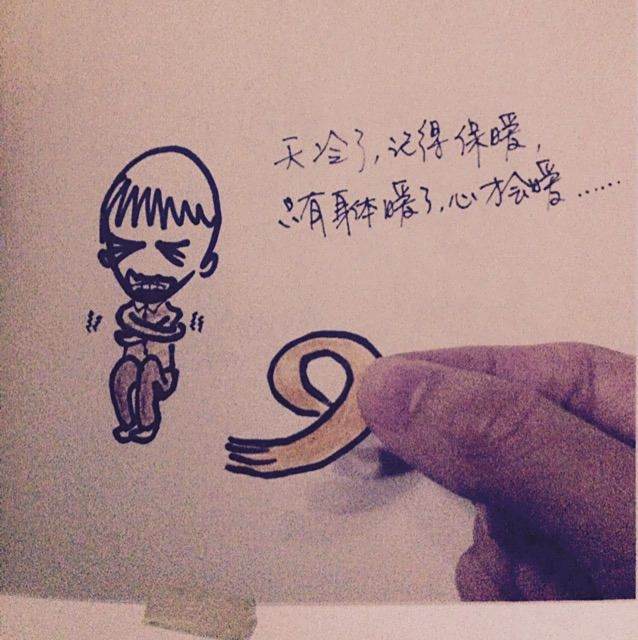 天冷了，记得保暖，
只有身体暖了，心才会暖……